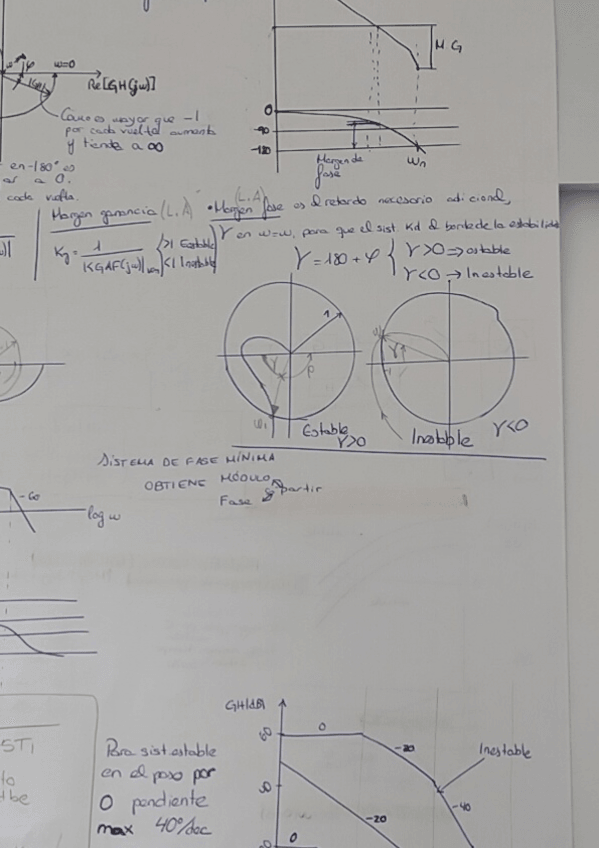 M.G
w=0
φ
Re[GH(jω)]
Como es mayor que -1
por cada vuelta aumenta
y tiende a ∞
en -180° es
a 0.
cada vuelta.
0
-90
-180
Margen de
fase
Margen ganancia (L.A)
Kg = 1 / KGAF(jω)|
>1 Estable
<1 Inestable
(L.A)
• Margen fase es el retardo necesario adicional,
γ en ω=ω, para que el sist Kd el borde de la estabilidad
γ = 180 + φ { γ>0 ⇒ estable
γ<0 → Inestable
1
γ
φ
ω1
Estable
γ>0
γ
Inestable
γ<0
SISTEMA DE FASE MÍNIMA
OBTIENE MÓDULO
Fase a partir
-60
log ω
STI
Para sist. estable
en el paso por
0 pendiente
max 40°/dec
GH(dB)
0
-20
Inestable
-40
-20
0